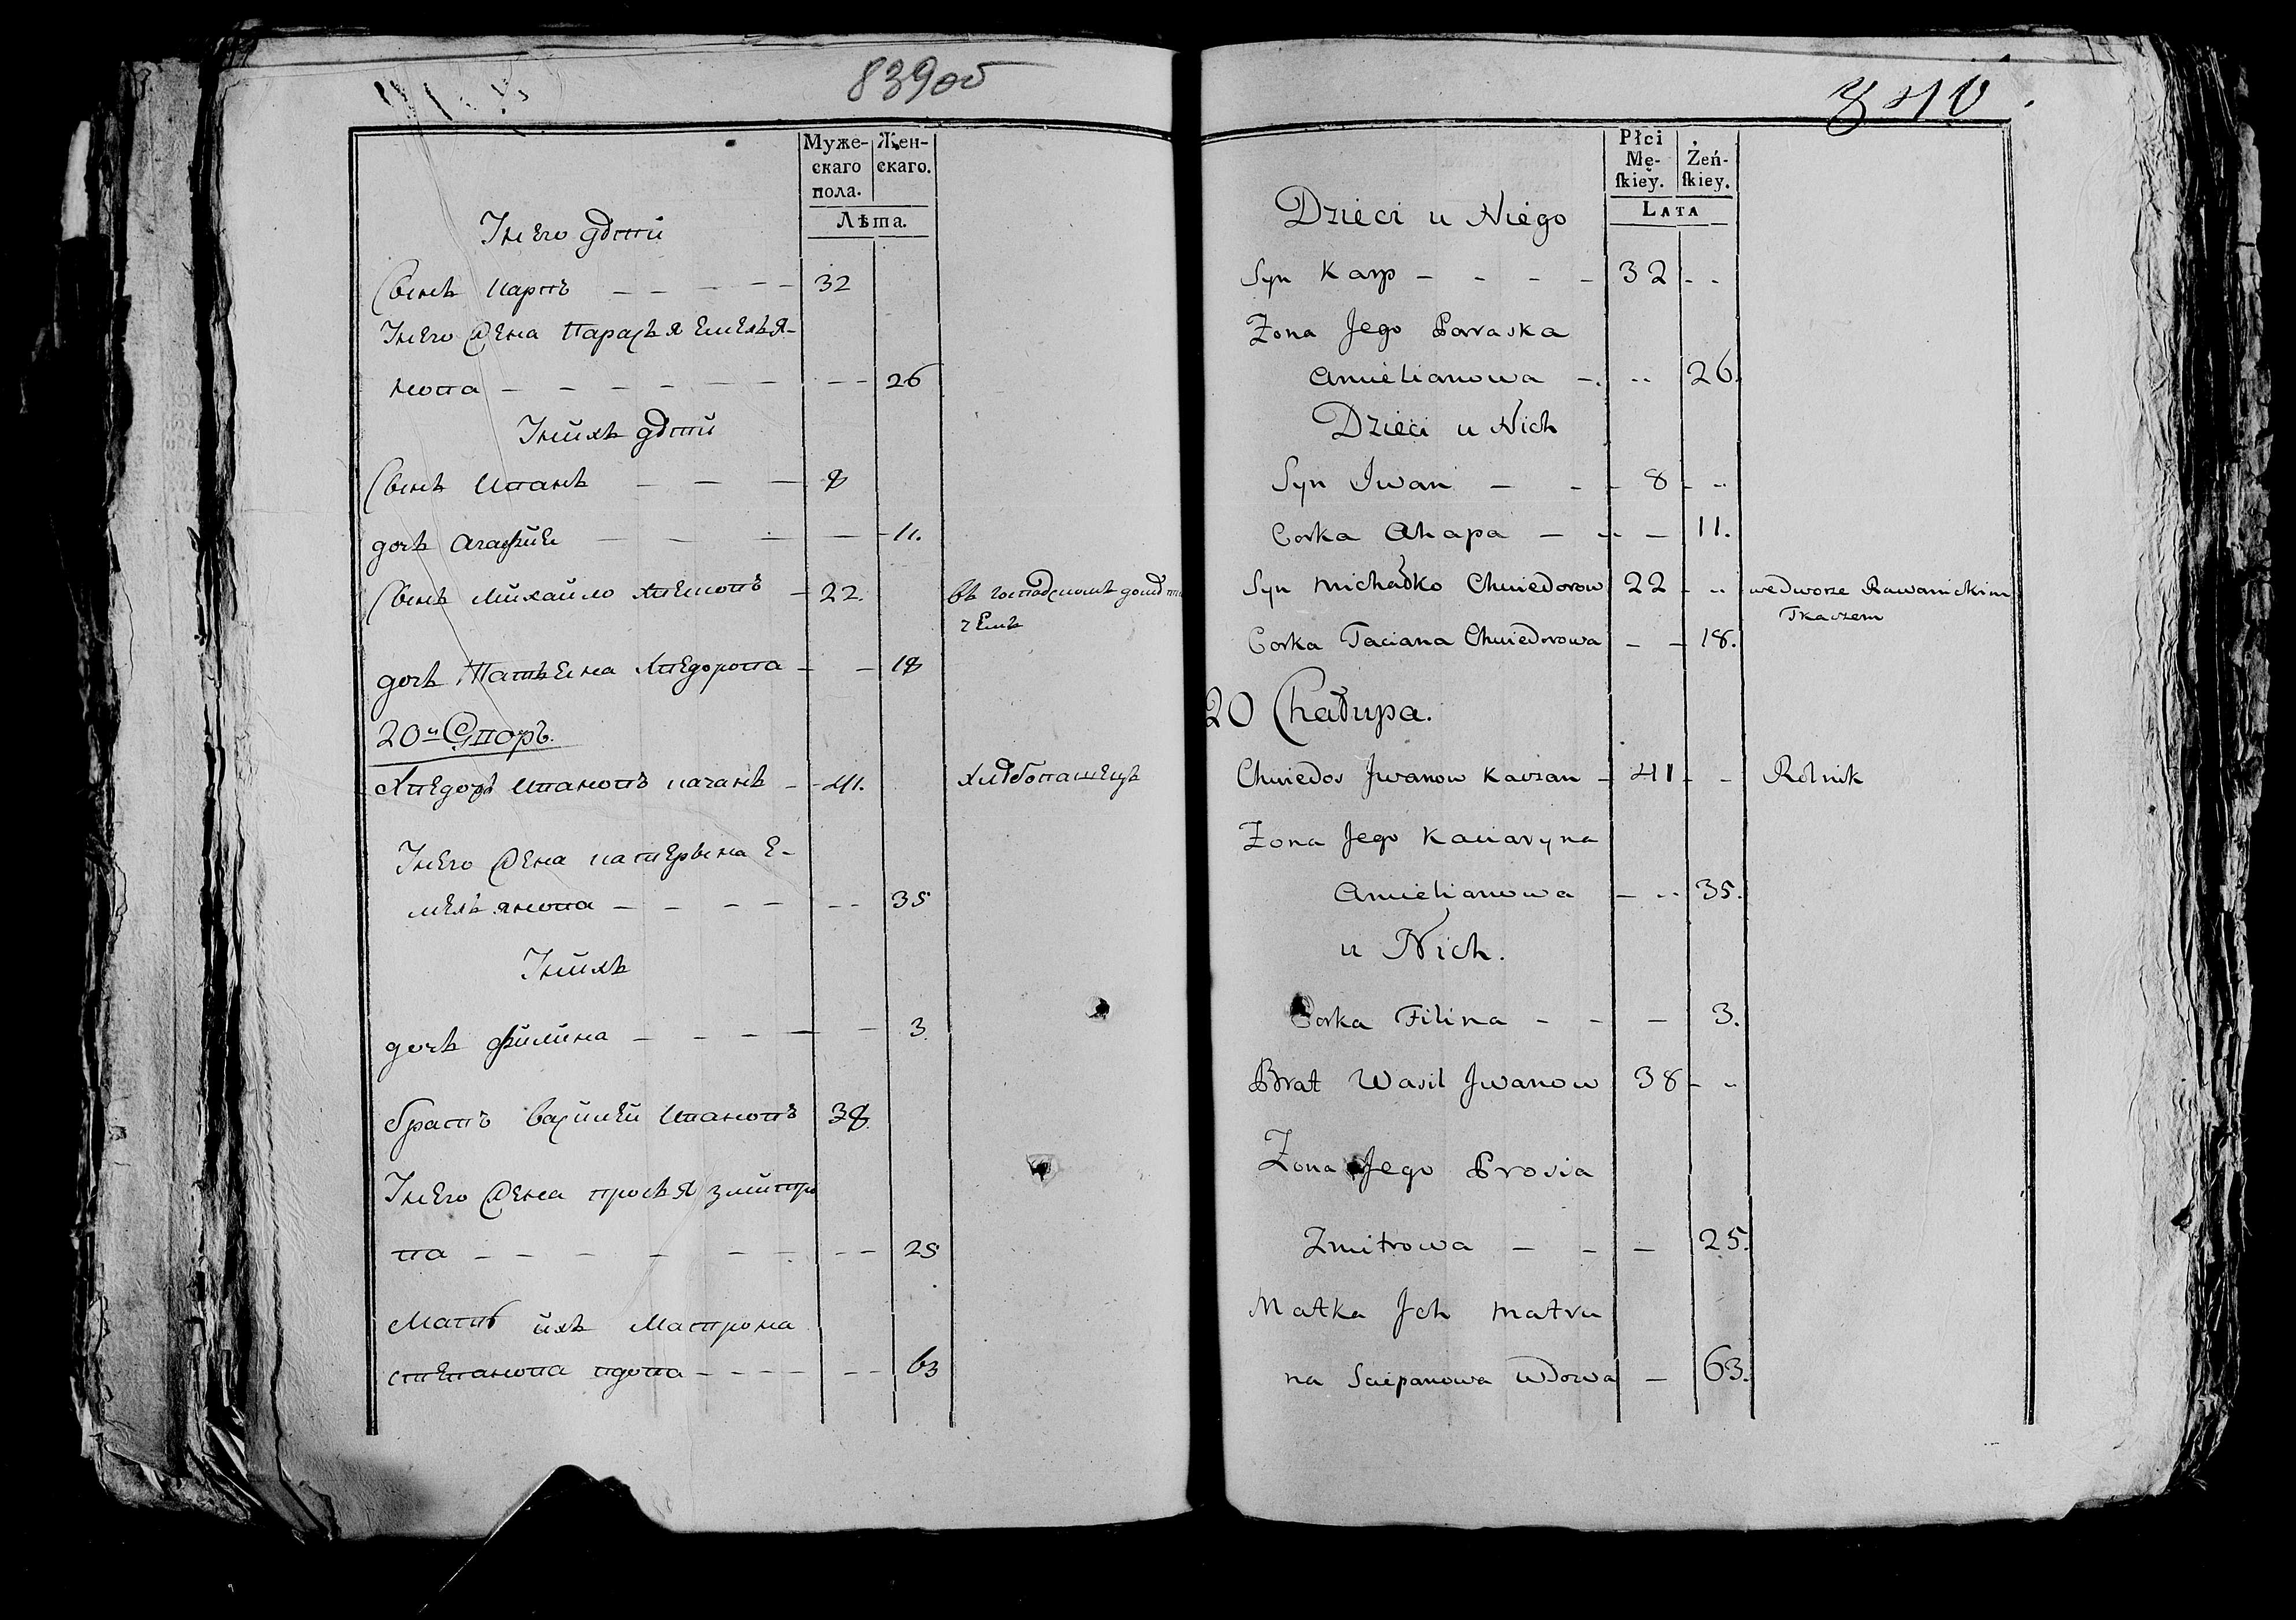 839об
Муже- Жен-
скаго скаго.
пола.
Лѣта.
У него дѣти
Сынъ Карпъ — — — — — 32
У него жена Парасья Емелья-
нова — — — — — — — — 26
У нихъ дѣти
Сынъ Иванъ — — — 8
дочь Агафия — — — — — 11.
Сынъ Михайло — 22. въ господскомъ домѣ тка
чемъ
дочь Татьяна Хведорова — — 18
20й Дворъ.
Хведоръ Ивановъ Качанъ — 41. Хлѣбопашецъ
У него жена Катерына Е-
мельянова — — — — — — 35
У нихъ
дочь Филина — — — — — 3.
братъ Василей Ивановъ 38.
У него жена Просья Змитро
ва — — — — — — — — 25
Мать ихъ Матрона
Степанова вдова — — — — — — 63
840.
Płci Żeń-
Mę- ſkiey.
ſkiey.
LATA
Dzieci u Niego
Syn Karp — - - - 32 - -
Zona Jego Paraska
Amielianowa - .. 26.
Dzieci u Nich
Syn Iwan — - - 8 - ..
Corka Ahapa — .. — 11.
Syn Michałko Chwiedorow 22 - .. we dworze Rawanickim
Tkaczem
Corka Taciana Chwiedorowa - - 18.
20 Chałupa.
Chwiedor Jwanow Kaczan - 41 - - Rolnik
Zona Jego Kaciaryna
Amielianowa - .. 35.
u Nich.
Corka Filina - - — 3.
Brat Wasil Jwanow 38 - ..
Zona Jego Prosia
Zmitrowa — - — 25.
Matka Jch Matru
na Sciepanowa Wdowa — 63.